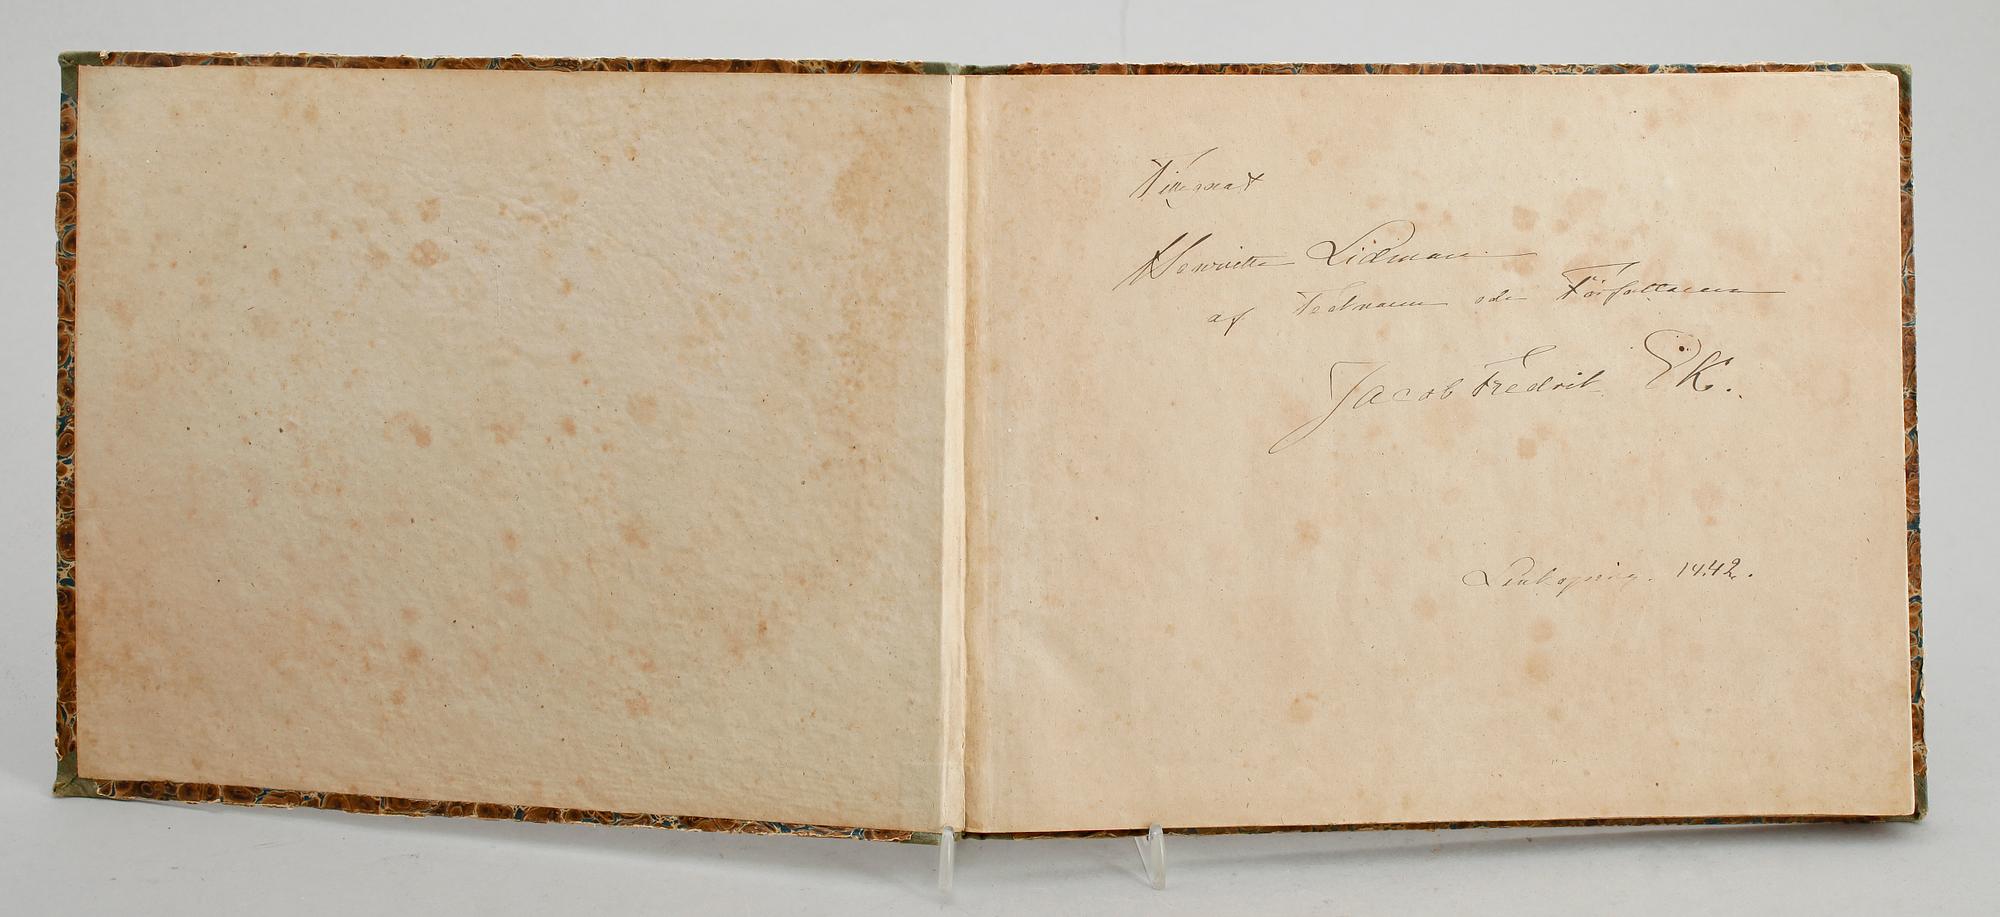 Tillegnat
Henriette Lidman
af Tecknaren och Författaren
Jacob Fredrik EK.
Linköping. 1842.